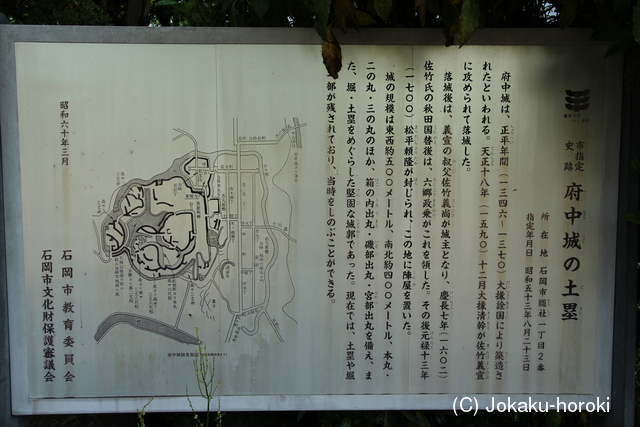 市指定
史跡
府中城の土塁
所在地 石岡市総社一丁目2番
指定年月日 昭和五十三年八月二十三日
府中城は、正平年間(一三四六〜一三七〇)大掾詮国により築造さ
れたといわれる。天正十八年(一五九〇)十二月大掾清幹が佐竹義宣
に攻められて落城した。
落城後は、義宣の叔父佐竹義尚が城主となり、慶長七年(一六〇二)
佐竹氏の秋田国替後は、六郷政乗がこれを領した。その後元禄十三年
(一七〇〇)松平頼隆が封じられ、この地に陣屋を置いた。
城の規模は東西約五〇〇メートル、南北約四〇〇メートル、本丸・
二の丸・三の丸のほか、箱の内出丸・磯部出丸・宮部出丸を備え、ま
た、堀・土塁をめぐらした堅固な城郭であった。現在では、土塁や堀
部が残されており、当時をしのぶことができる。
昭和六十年三月
石岡市教育委員会
石岡市文化財保護審議会
(C) Jokaku-horoki